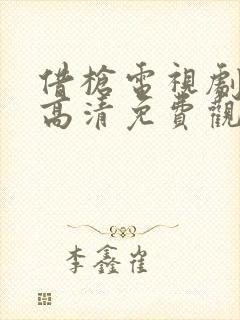 借槍電視劇
高清免費觀
李鑫崔